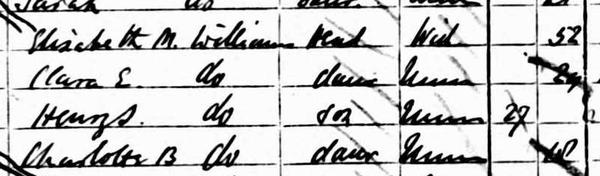 Sarah do
Elizabeth M. Williams head Wid 52
Clara E. do daur Unm
Henry S. do son Unm 27
Charlotte B do daur Unm